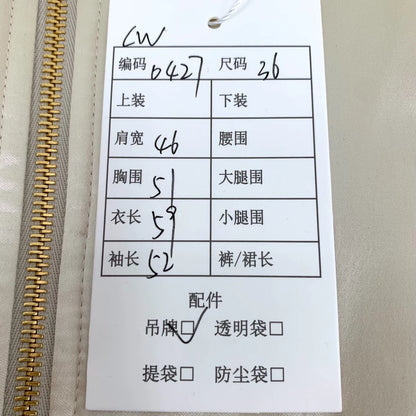 CW
编码 0427 尺码 36
上装 下装
肩宽 46 腰围
胸围 51 大腿围
衣长 59 小腿围
袖长 52 裤/裙长
配件
吊牌☑ 透明袋□
提袋□ 防尘袋□